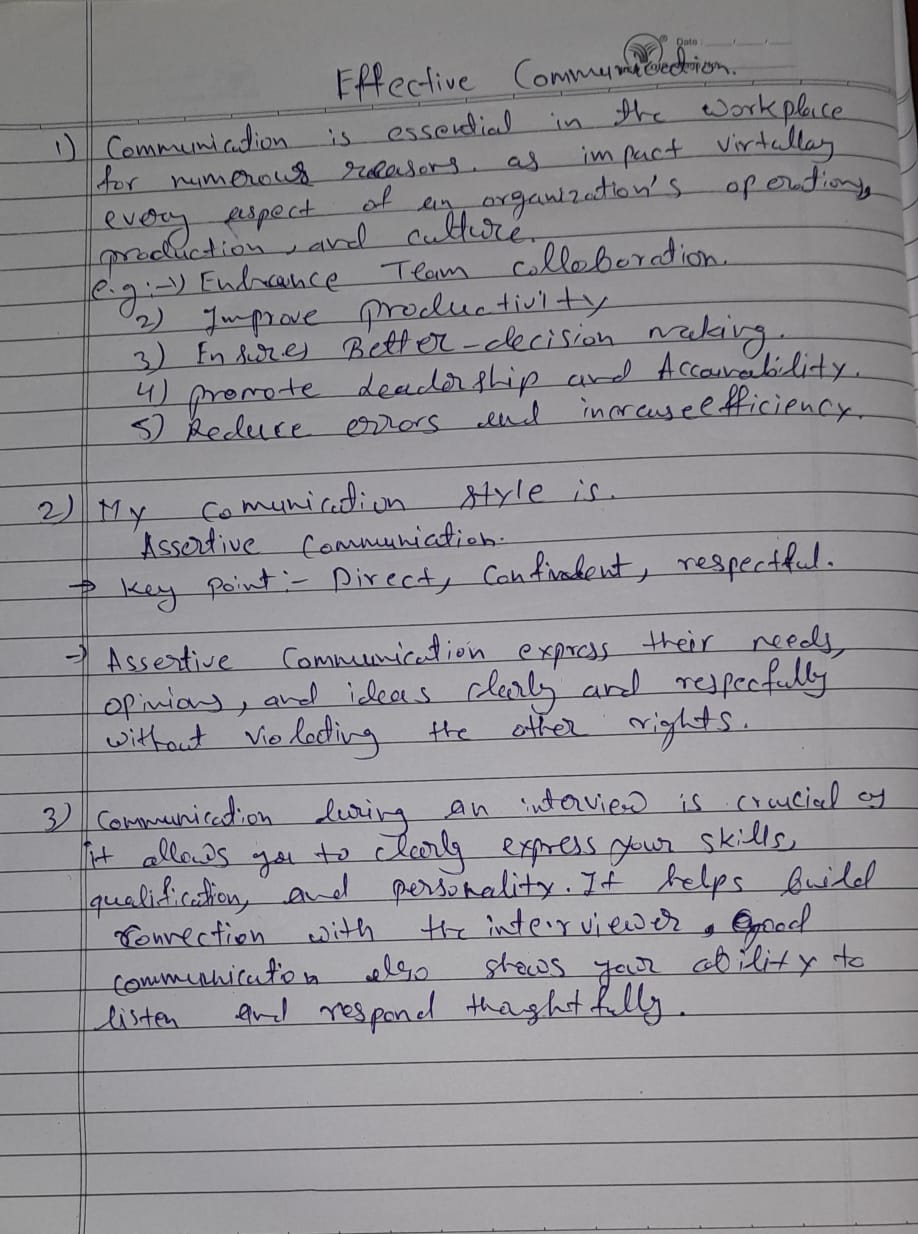 Date
Effective Communication.
1) Communication is essential in the workplace
for numerous reasons. as impact virtullay
every aspect of an organization's operations,
production, and culture.
e.g:-1) Enhance Team collaboration.
2) Improve productivity
3) Ensures Better-decision making.
4) promote Leadership and Accounability.
5) Reduce errors and increase efficiency.
2) My Comunication style is.
Assertive Communication.
→ Key point:- Direct, Confindent, respectful.
→ Assertive Communication express their needs,
opinions, and ideas clearly and respecfully
without violating the other rights.
3) Communication during an interview is crucial as
it allows you to clearly express your skills,
qualification, and personality. It helps build
connection with the interviewer, good
communication also shows your ability to
listen and respond thaghtfully.